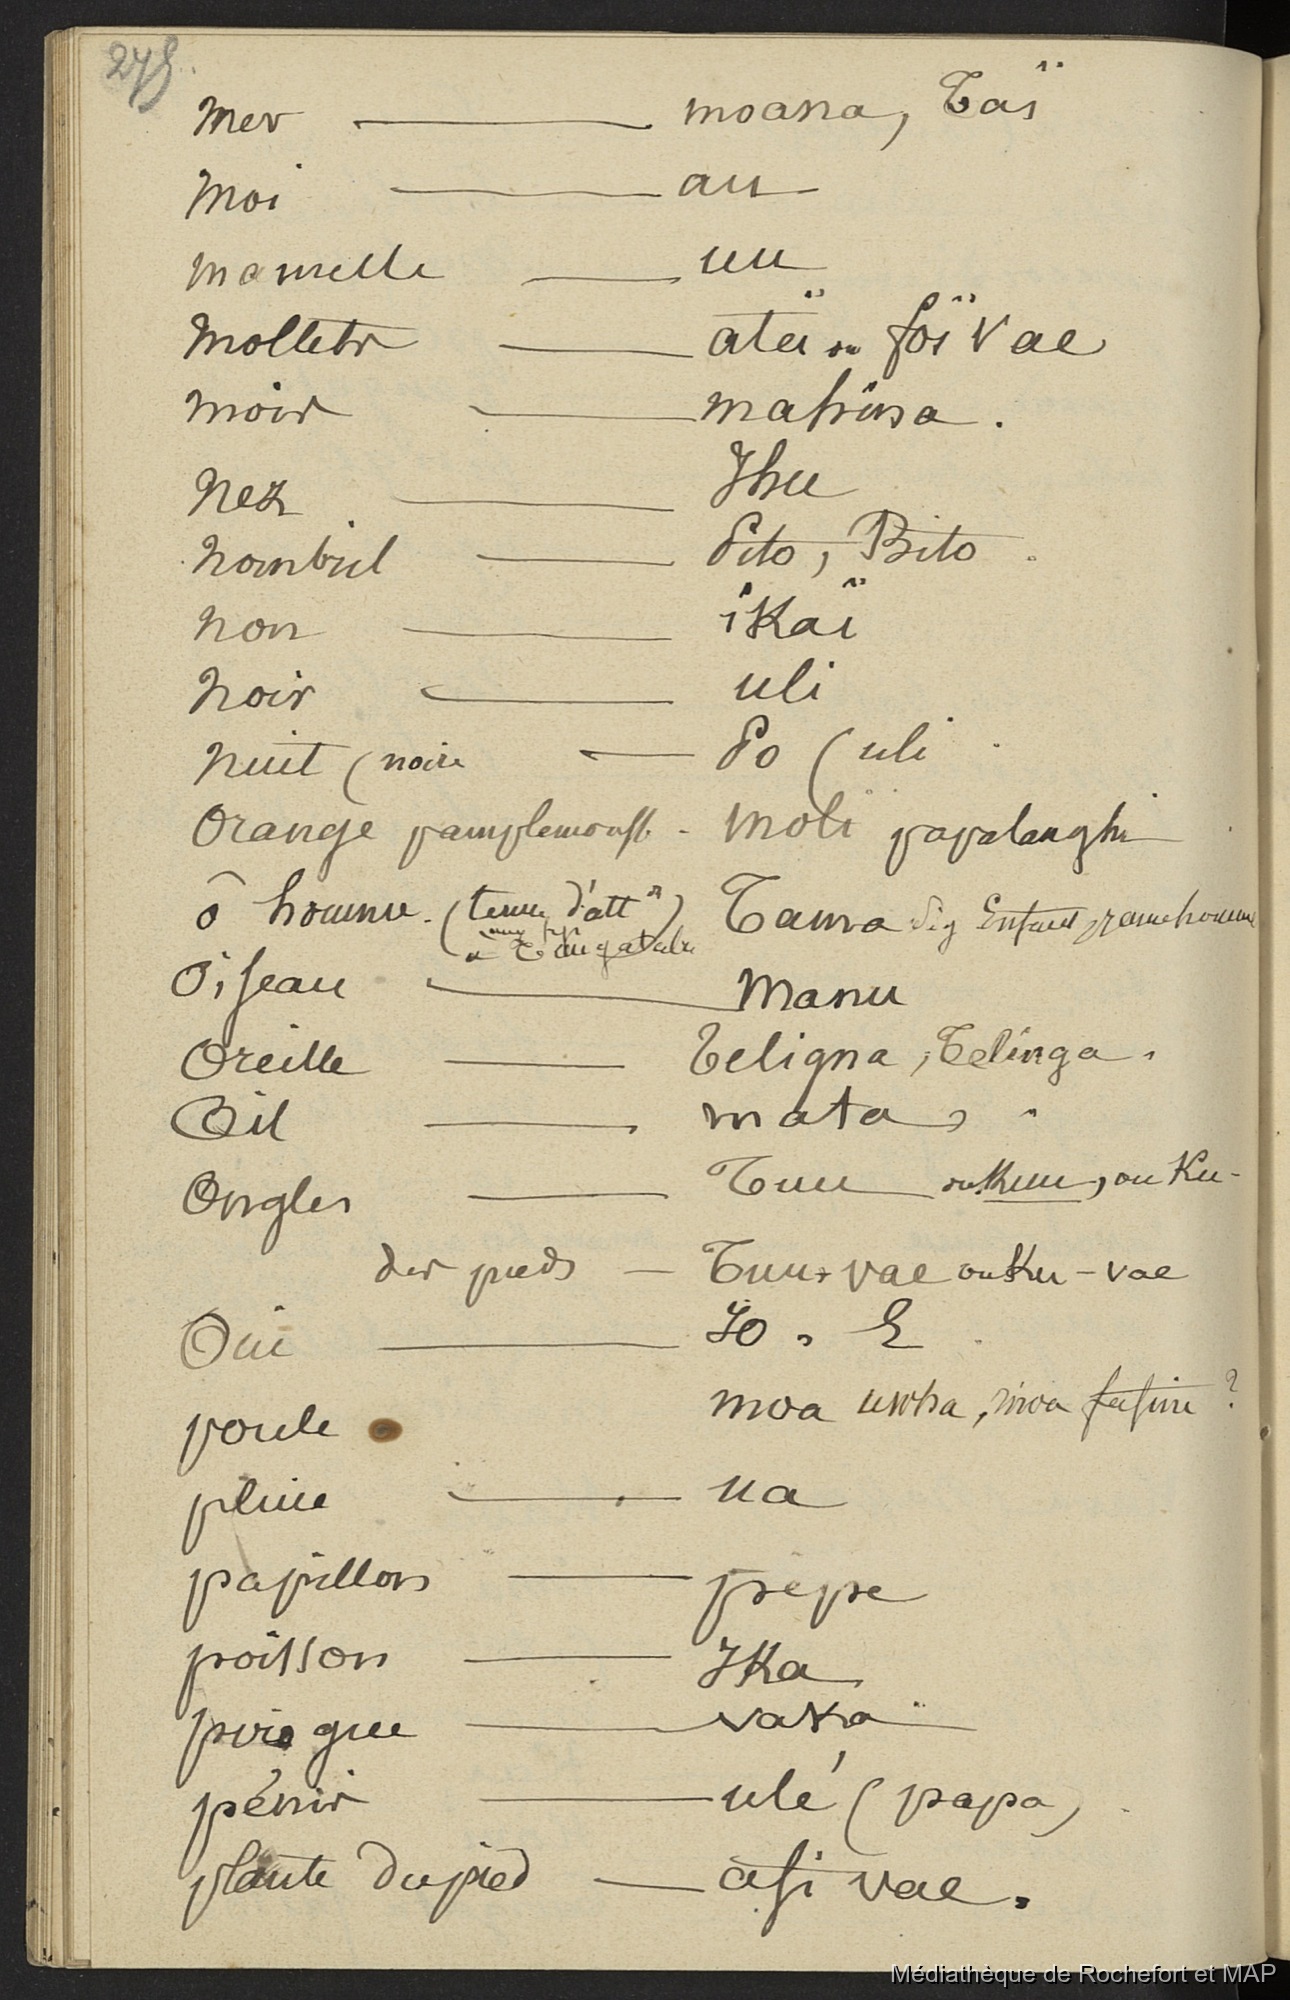 275.
Mer — moana, Taï
Moi — au
mamelle — uu
Mollets — ateï ou foï vae
mois — mahina.
Nez — Ihu
Nombril — Pito, Bito.
Non — ikaï
Noir — uli
Nuit (noire — Po (uli
Orange pamplemousse - moli papalanghi
ô homme. (terme d'atton) Tama sig Enfant, jeune homme
Oiseau — Manu
Oreille — Teligna, Telinga.
Œil — mata,
Ongles — Tuu ou Kuu, ou Ku-
des pieds — Tuu-vae ou Ku-vae
Oui — Io, E
poule moa uwha, moa fafine ?
pluie — ua
papillon — pepe
poisson — Ika
pirogue — vaka
pénis — ulé (papa)
plante du pied — afi vae.
Médiathèque de Rochefort et MAP